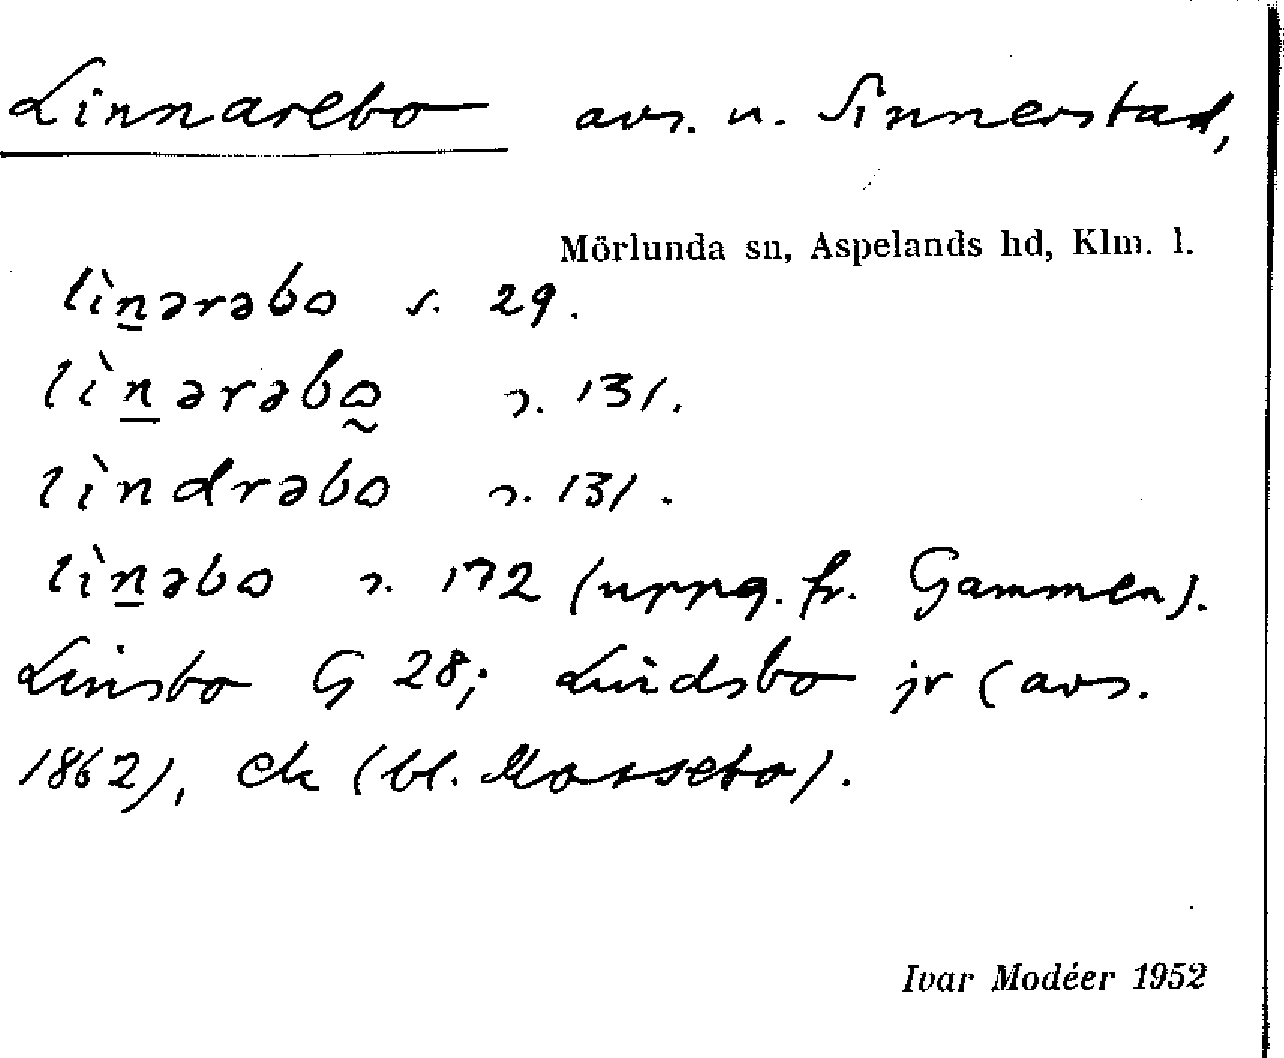 Linnarebo avs. u. Sinnerstad,
Mörlunda sn, Aspelands hd, Klm. l.
lìn̲ərəbo s. 29.
lìn̲ərəbo̰ s. 131.
lìndrəbo s. 131.
lìn̲əbo s. 172 (uppg. fr. Gammen).
Linsbo G 28; Lindsbo jr (avs.
1862), ek (bl. Mossebo).
Ivar Modéer 1952